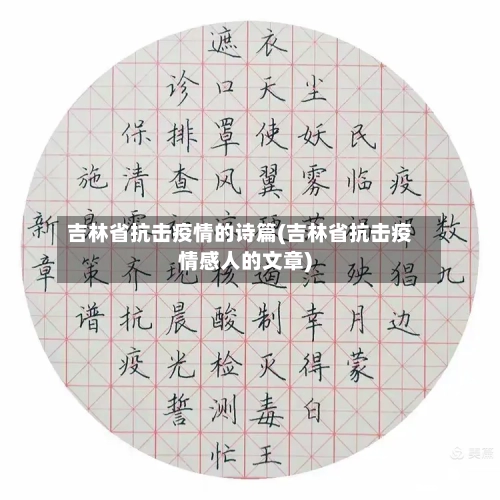 遮衣
诊口天尘
保排罩使妖民
施清查风翼雾临疫
新数
吉林省抗击疫情的诗篇(吉林省抗击疫
情感人的文章)
章策齐现核殃猖九
谱抗晨酸制幸月边
疫光检灭得蒙
誓测毒白
忙王